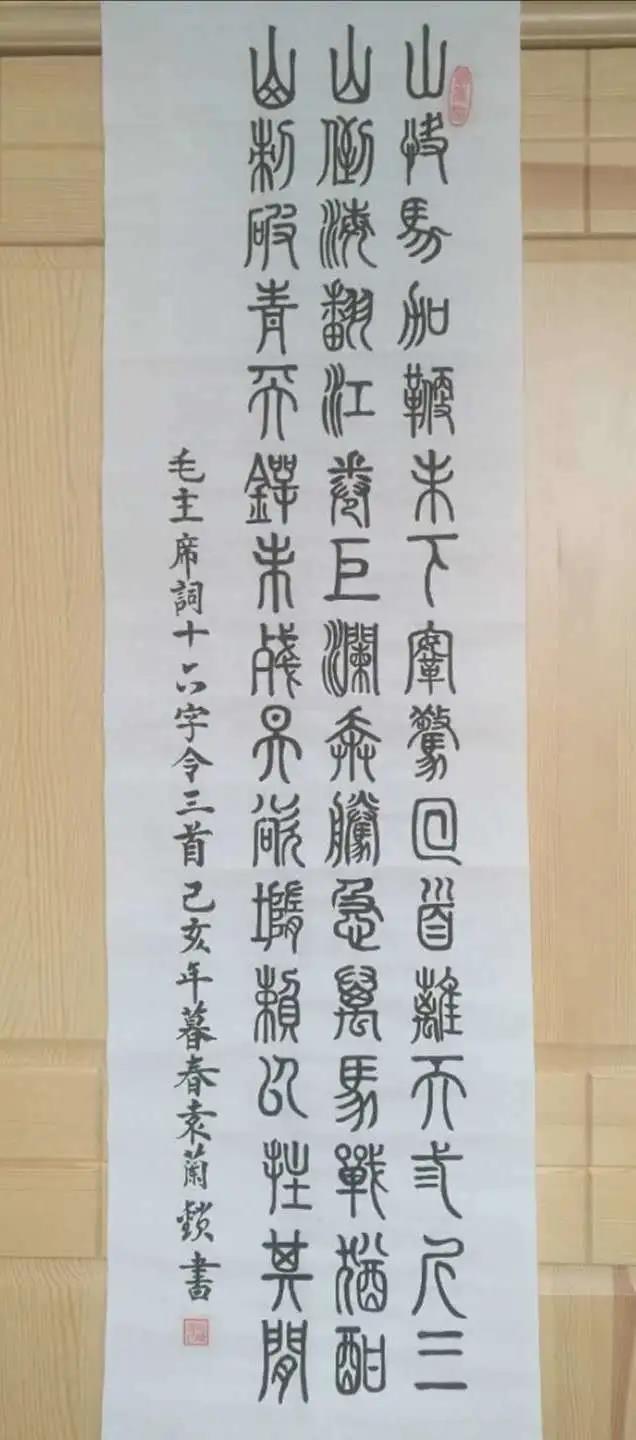 山快馬加鞭未下鞌驚回首離天弎尺三
山倒海翻江卷巨瀾奔騰急萬馬戰猶酣
山刺破青天鍔未殘天欲墮賴以拄其閒
毛主席詞十六字令三首己亥年暮春袁蘭鎖書